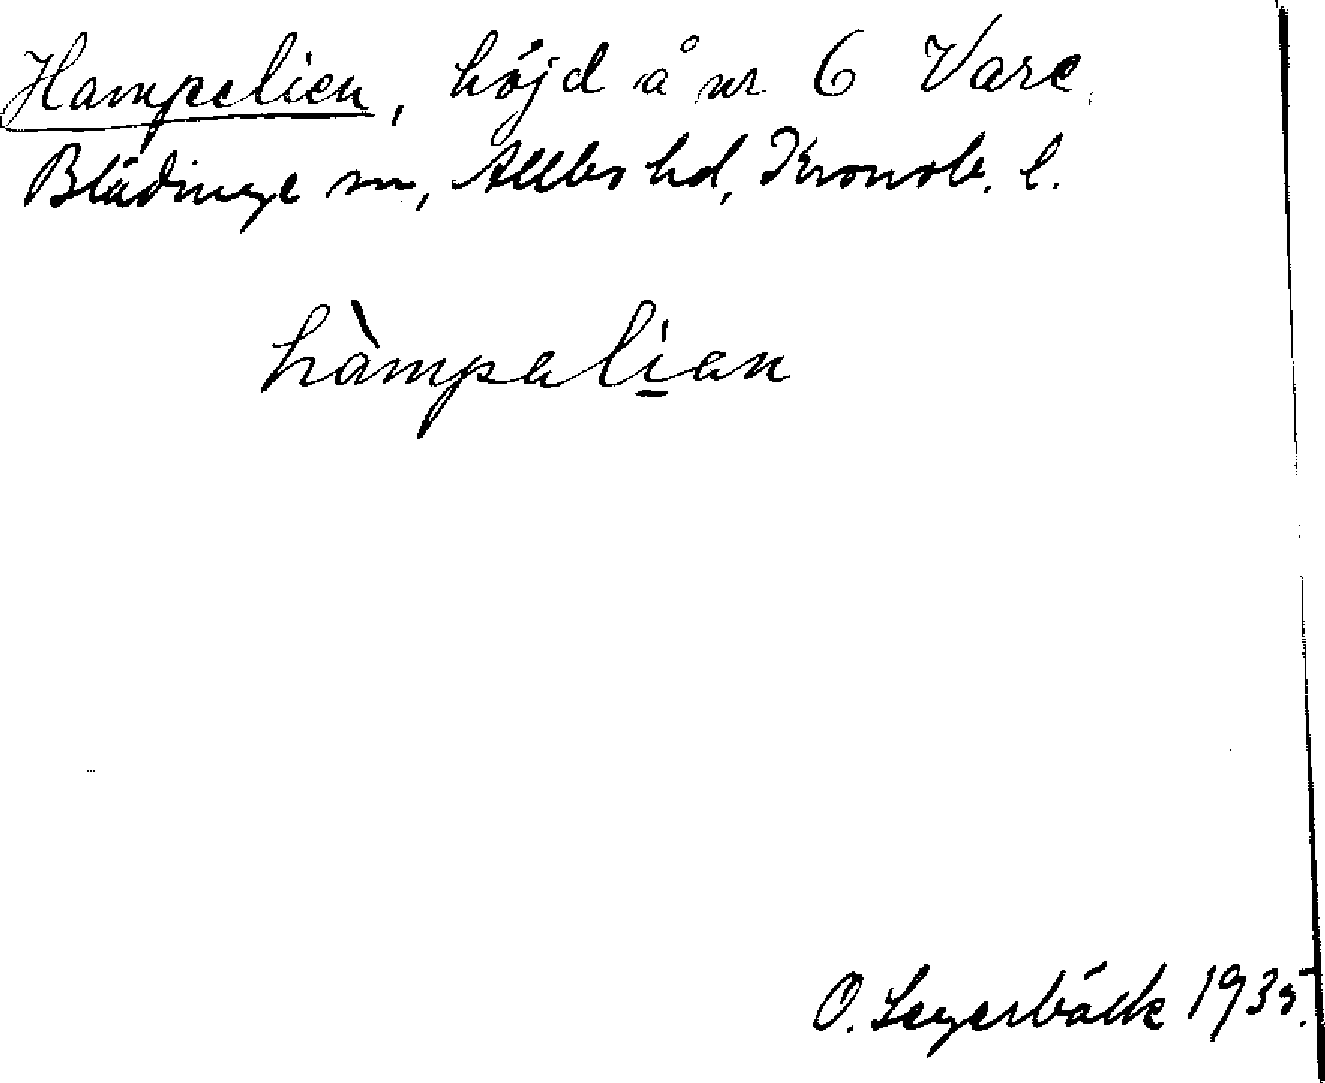 Hampelien, höjd å nr 6 Vare.
Blädinge sn, Allbo hd, Kronob. l.
hàmpalian
O. Legerbäck 1935.